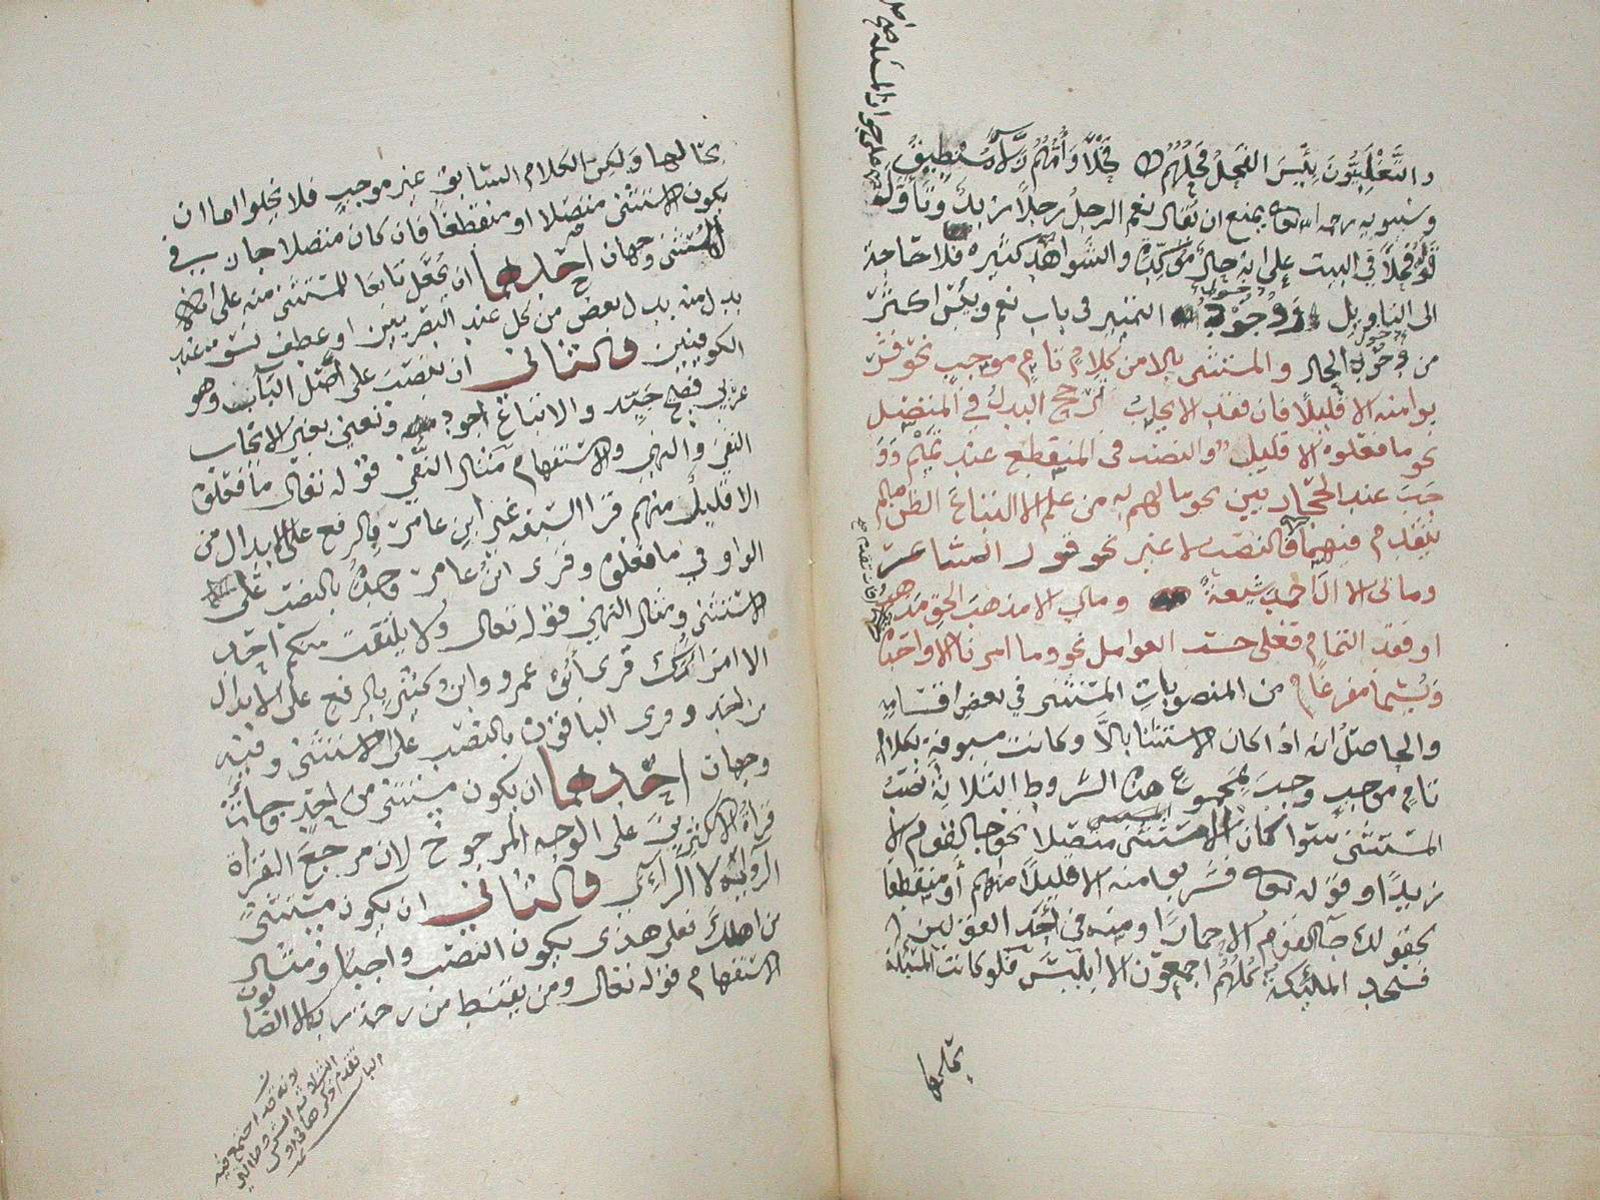 والتغلبيون بئس الفحل فحلهم فحلا وأمهم زلاء منطيق
وسيبويه رحمه الله تعالى يمنع ان يقال نعم الرجل رجلا زيد وتأول
قوله فحلا في البيت على انه حال مؤكدة والشواهد كثيرة فلا حاجة
الى التأويل ودخول التمييز في باب نعم وبئس اكثر
من دخول الحال والمستثنى بالا من كلام تام موجب نحو فشر
بوا منه الا قليلا فان فقد الايجاب ترجح البدل في المتصل
نحو ما فعلوه الا قليل والنصب في المنقطع عند تميم وو
جب عند الحجازيين نحو ما لهم به من علم الا اتباع الظن ما لم
يتقدم فيهما فالنصب لا غير نحو قول الشاعر
وما لي الا آل احمد شيعة وما لي الا مذهب الحق مذهب
او فقد التمام فعلى حسب العوامل نحو وما امرنا الا واحدة
ويسمى مفرغا من المنصوبات المستثنى في بعض اقسامه
والحاصل انه اذا كان الاستثنا بالا وكانت مسبوقة بكلام
تام موجب وجب بمجموع هذه الشروط الثلاثة نصب
المستثنى سوا كان الاستثنى متصلا نحو جا القوم الا
زيدا وقوله تعالى فشربوا منه الا قليلا منهم أو منقطعا
كقولك جا القوم الا حمارا ومنه في أحد القولين
فسجد الملئكة كلهم اجمعون الا ابليس فلو كانت المسئلة
بحالها
بحالها ولكن الكلام السابق غير موجب فلا يخلوا اما ان
يكون الاستثنى متصلا او منقطعا فان كان متصلا جاز في
المستثنى وجهان احدهما ان يجعل تابعا للمستثنى منه على انه
بدل منه بدل بعض من كل عند البصريين او عطف نسق عند
الكوفيين والثاني ان ينصب على أصل الباب وهو
عربي فصيح جيد والاتباع اجود ونعني بغير الايجاب
النفي والنهي والاستفهام مثال النفي قوله تعالى ما فعلوه
الا قليل منهم قرا السبعة غير ابن عامر بالرفع على الابدال من
الواو في ما فعلوه وقرى ابن عامر وحده بالنصب على
الاستثنى ومثال النهي قوله تعالى ولا يلتفت منكم احد
الا امراتك قرى أبو عمرو وابن كثير بالرفع على الابدال
من احد وقرى الباقون بالنصب على الاستثنى وفيه
وجهان احدهما ان يكون مستثنى من احد وجاءت
قراة الاكثرين على الوجه المرجوح لان مرجع القراة
الرواية لا الرأي والثاني ان يكون مستثنى
من اهلك فعلى هذى يكون النصب واجبا ومثال
الاستفهام قوله تعالى ومن يقنط من رحمة ربه الا الضا
لون
لانه قد اجتمع فيه
الثلاثة الشروط التي
تقدم ذكرها في اول
الباب